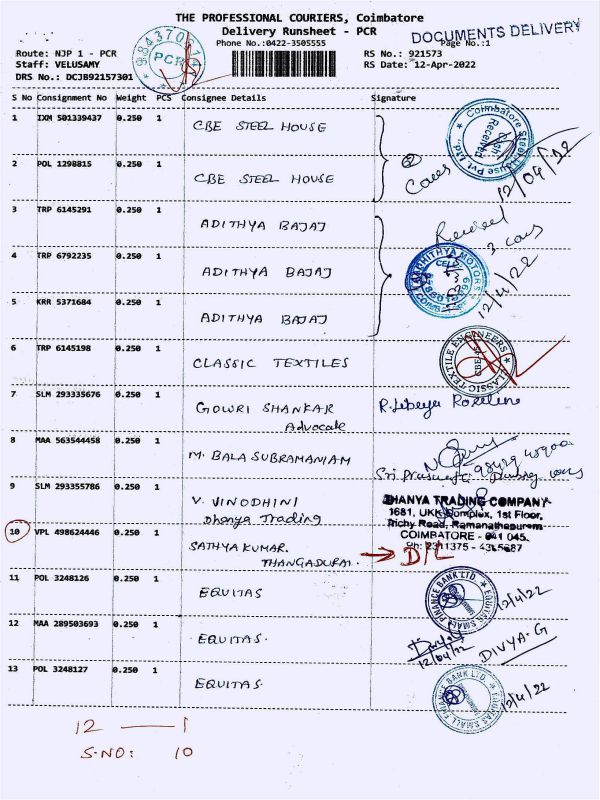 THE PROFESSIONAL COURIERS, Coimbatore
Delivery Runsheet - PCR
DOCUMENTS DELIVERY
Phone No.:0422-3505555
Page No.:1
Route: NJP 1 - PCR
RS No.: 921573
Staff: VELUSAMY
RS Date: 12-Apr-2022
DRS No.: DCJB92157301
PCR
S No Consignment No Weight PCS Consignee Details Signature
1 IXM 501339437 0.250 1 CBE STEEL HOUSE
Coimbatore
Cash Received
2 Coves
12/04/22
2 POL 1298815 0.250 1 CBE STEEL HOUSE
3 TRP 6145291 0.250 1 ADITHYA BAJAJ
Received
3 covs
4 TRP 6792235 0.250 1 ADITHYA BAJAJ
12/4/22
5 KRR 5371684 0.250 1 ADITHYA BAJAJ
6 TRP 6145198 0.250 1 CLASSIC TEXTILES
CLASSIC TEXTILE ENGINEERS
CBE
7 SLM 293335676 0.250 1 GOWRI SHANKAR
Advocate
8 MAA 563544458 0.250 1 M. BALA SUBRAMANIAM
9 SLM 293355786 0.250 1 V. VINODHINI
Dhanya Trading
DHANYA TRADING COMPANY
1681, UKK Complex, 1st Floor,
Trichy Road, Ramanathapuram
COIMBATORE - 641 045.
10 VPL 498624446 0.250 1 SATHYA KUMAR.
THANGADURAI.
D/L
11 POL 3248126 0.250 1 EQUITAS
EQUITAS SMALL FINANCE BANK LTD.
12/4/22
12 MAA 289503693 0.250 1 EQUITAS.
12/04/22
DIVYA-G
13 POL 3248127 0.250 1 EQUITAS.
EQUITAS SMALL FINANCE BANK LTD.
12/4/22
12 — 1
S.NO: 10